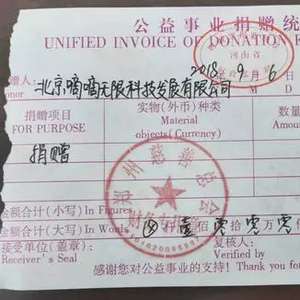 公益事业捐赠统
UNIFIED INVOICE OF DONATION
河南省
赠人:北京嘀嘀无限科技发展有限公司 2018年9月6日
捐赠项目 实物(外币)种类
FOR PURPOSE Material
objects(Currency)
捐赠
郑州慈善总会
财务专用章
金额合计(小写)In Figures
金额合计(大写)In Words 壹佰零拾零万零
接受单位(盖章): 复核人:
Receiver's Seal Verified by
感谢您对公益事业的支持! Thank